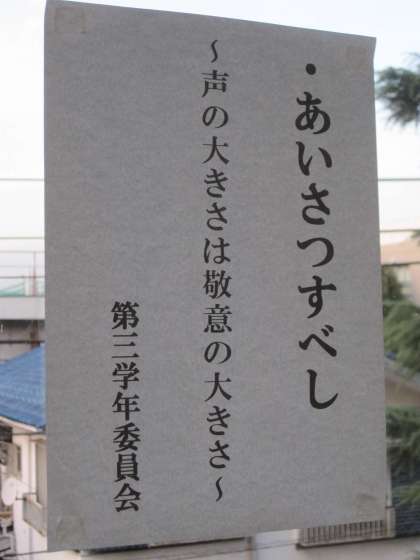 ・あいさつすべし
～声の大きさは敬意の大きさ～
第三学年委員会